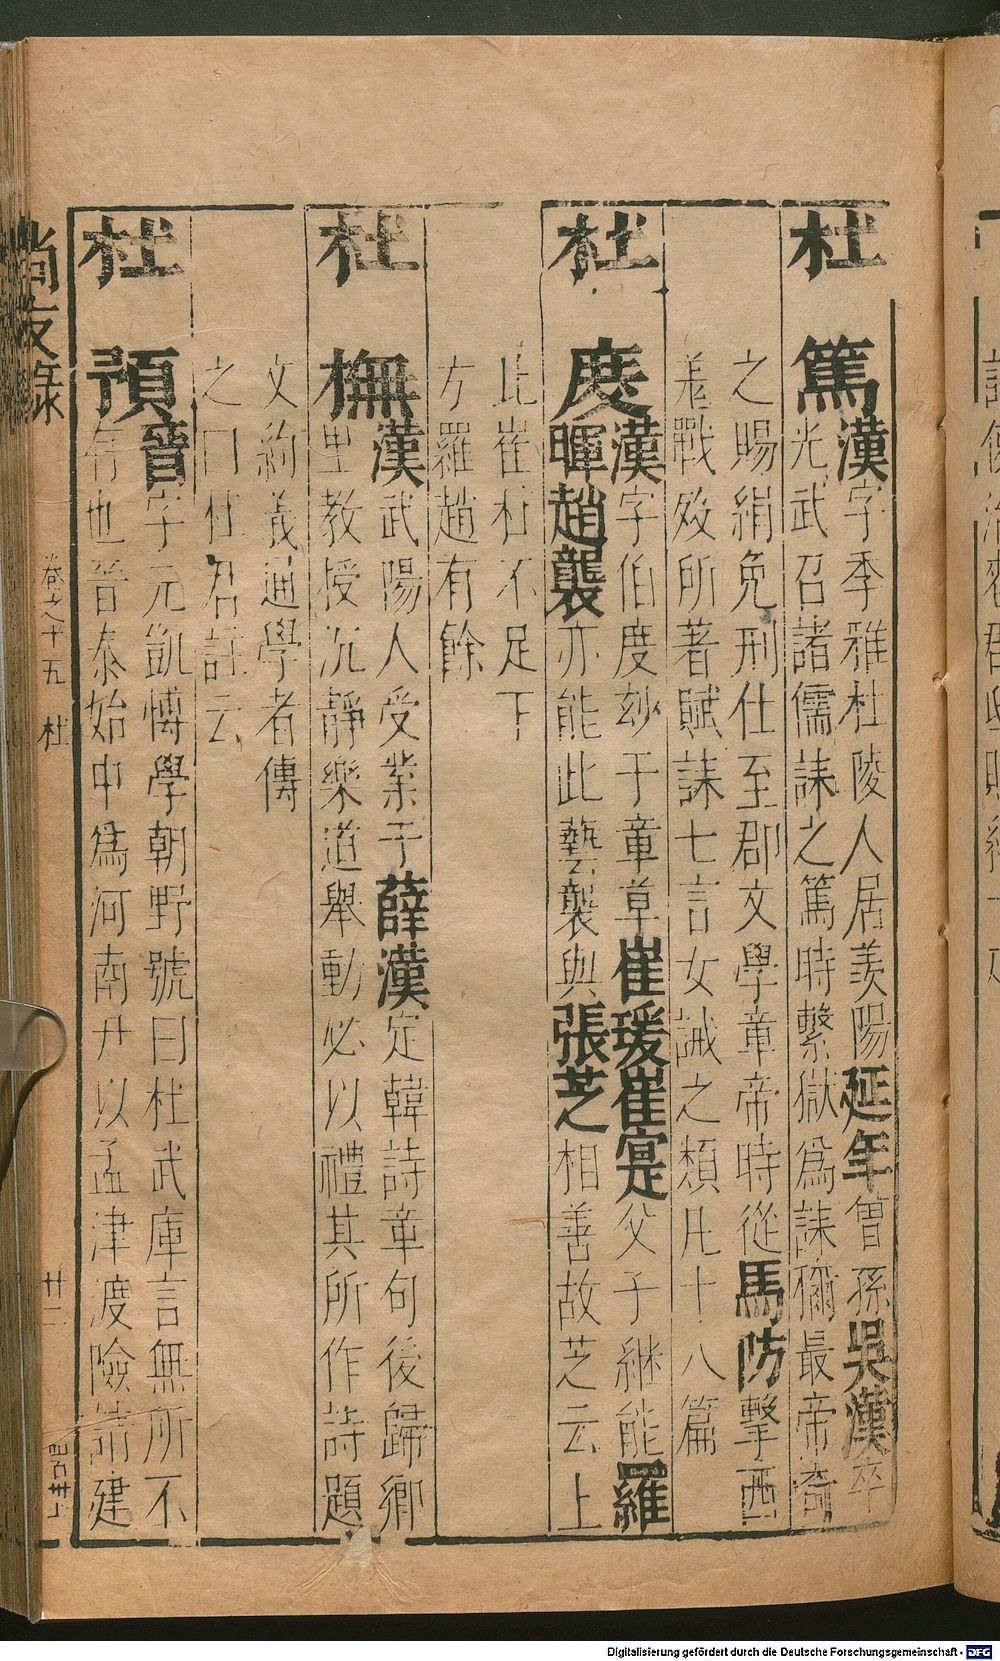 杜篤漢字季雅杜陵人居美陽延年曾孫吳漢卒
光武召諸儒誄之篤時繫獄爲誄獨最帝奇
之賜絹免刑仕至郡文學章帝時從馬防擊西
羌戰歿所著賦誄七言女誡之類凡十八篇
杜度漢字伯度玅于章草崔瑗崔寔父子継能羅
暉趙襲亦能此藝襲與張芝相善故芝云上
比崔杜不足下
方羅趙有餘
杜撫漢武陽人受業于薛漢定韓詩章句後歸卿
里教授沉靜樂道舉動必以禮其所作詩題
文約義通學者傳
之曰杜君註云
杜預晉字元凱博學朝野號曰杜武庫言無所不
有也晉泰始中爲河南尹以孟津渡險請建
尚友錄 卷之十五 杜 廿二
Digitalisierung gefördert durch die Deutsche Forschungsgemeinschaft - DFG